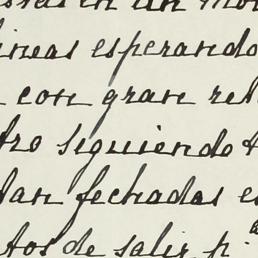 en un mo
lineas esperando
con gran re
tro siguiendo
dan fechadas e
tos de salir p.ª